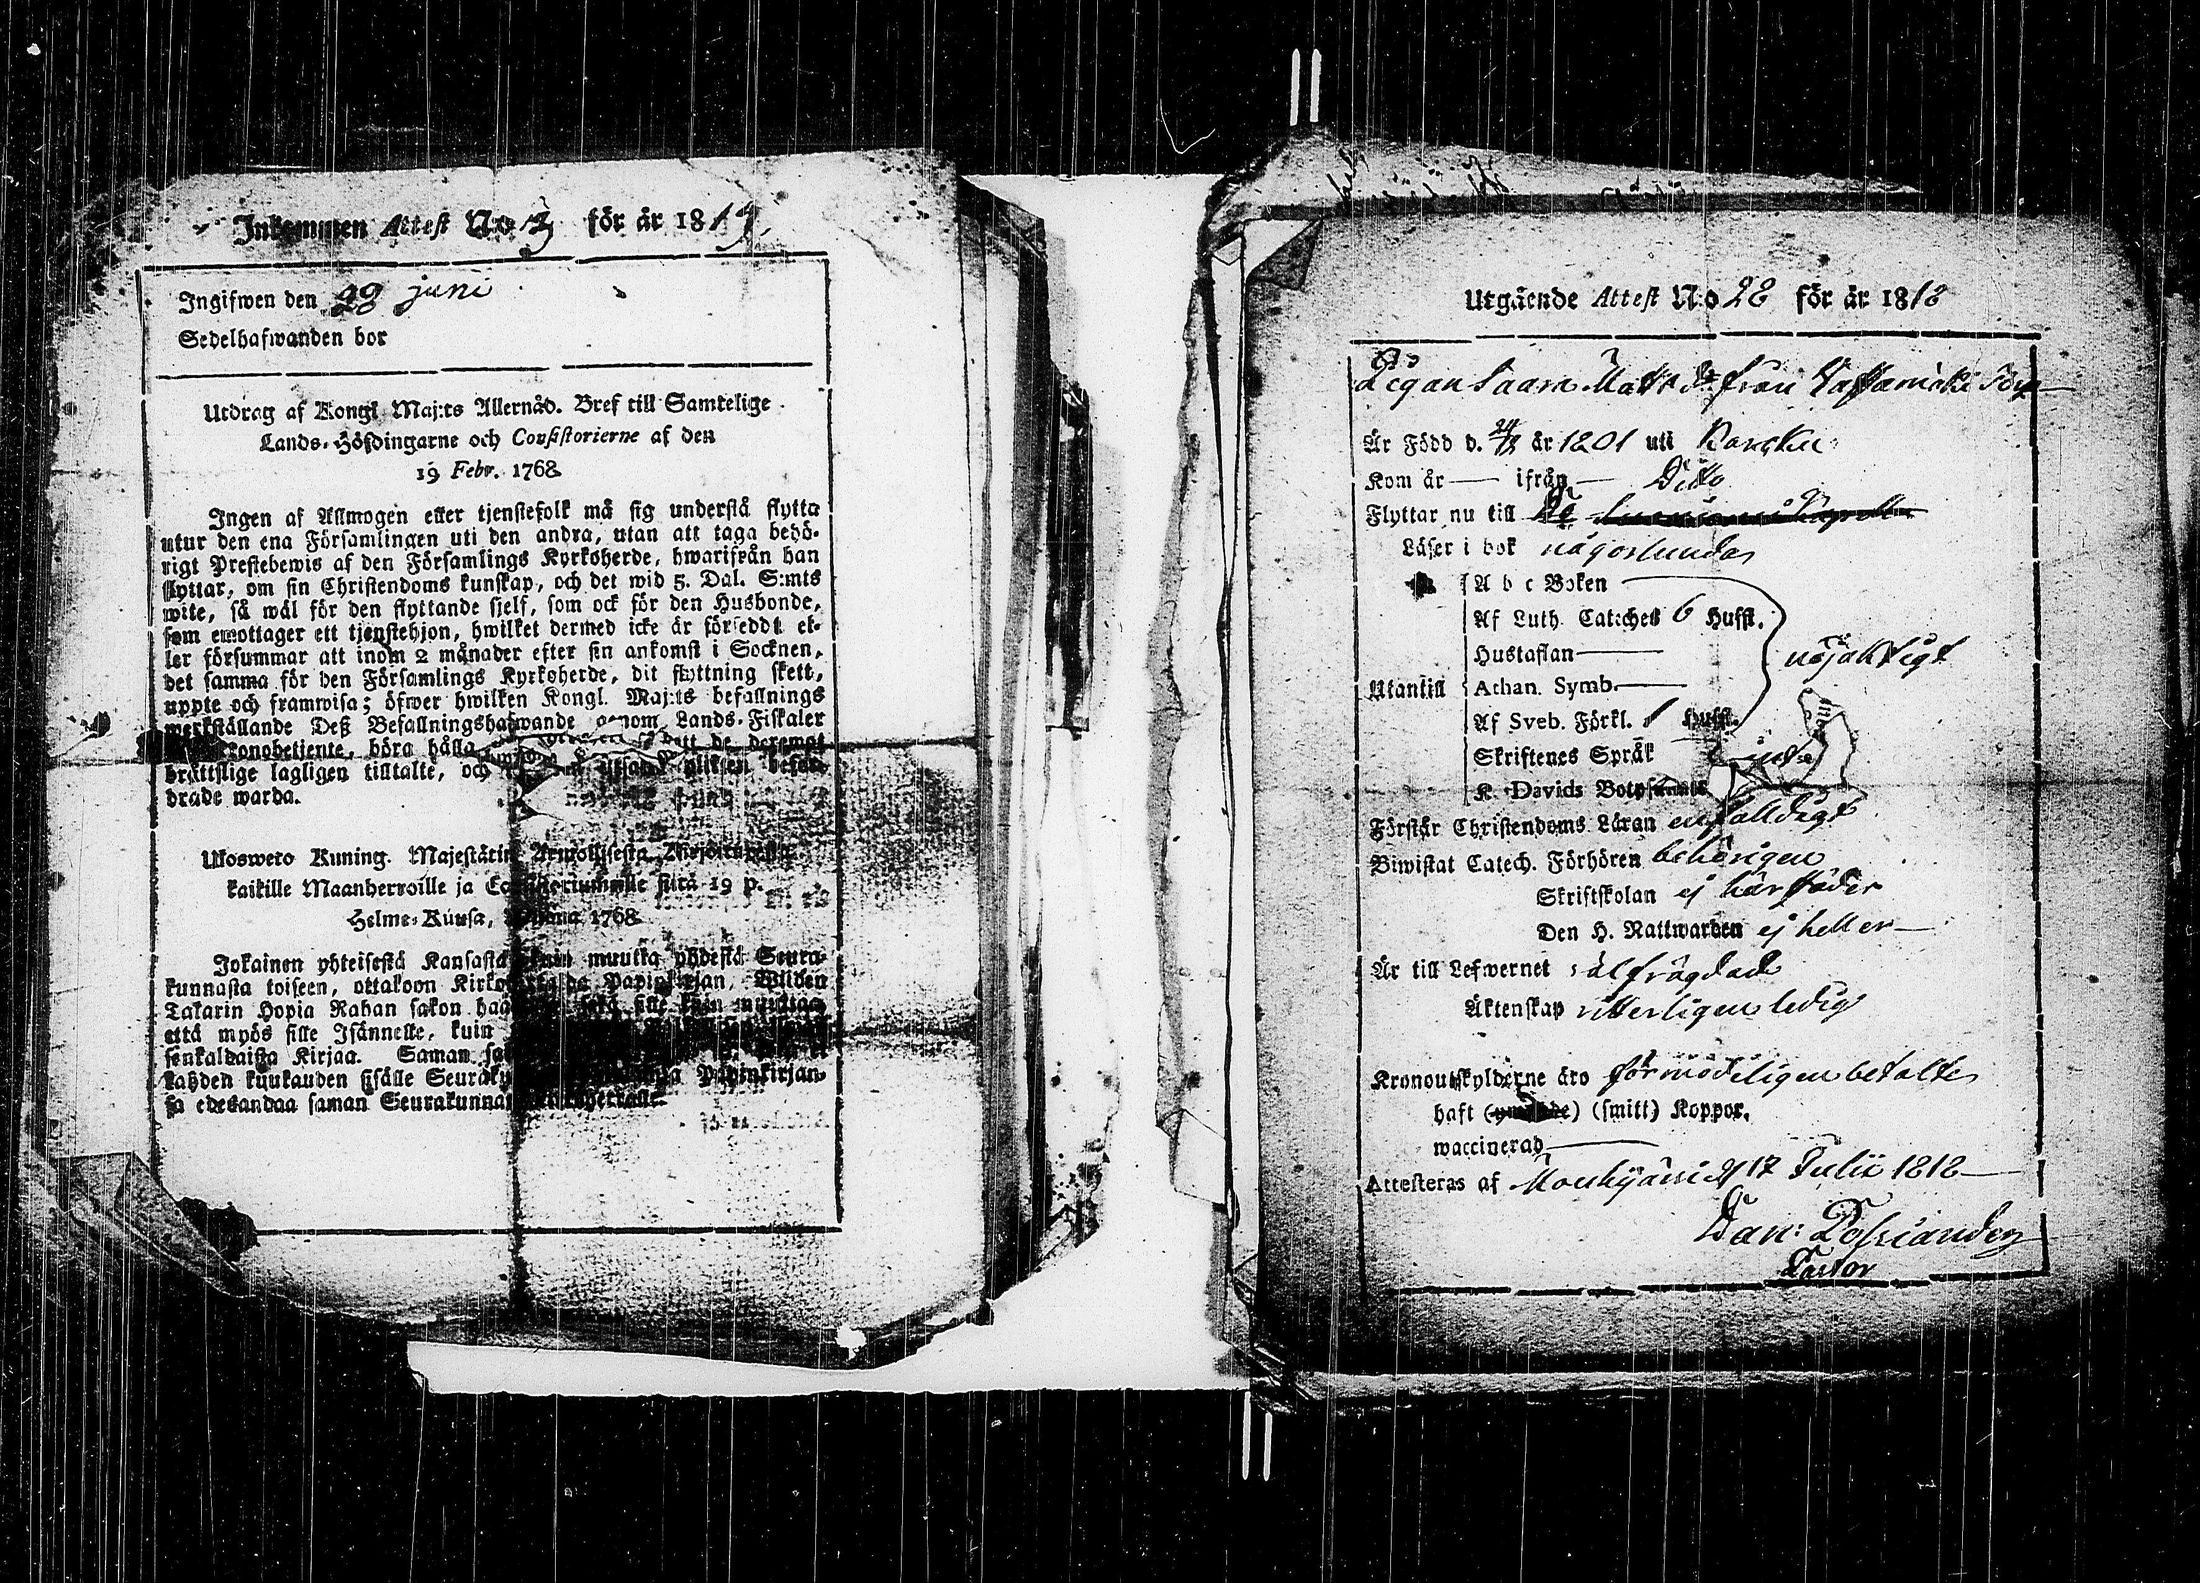 Inkommen Attest No 3 för år 1819.
Ingifwen den 28 juni
Sedelhafwanden bor
Utdrag af Kongl Maj:ts Allernåd. Bref till Samtelige
Lands-Höfdingarne och Consistorierne af den
19 Febr. 1768
Ingen af Allmogen eller tjenstefolk må sig understå flytta
utur den ena Församlingen uti den andra, utan att taga behö-
rigt Prestebewis af den Församlings Kyrkoherde, hwarifrån han
flyttar, om sin Christendoms kunskap, och det wid 5. Dal. S:mts
wite, så wäl för den flyttande sjelf, som ock för den Husbonde,
som emottager ett tjenstehjon, hwilket dermed icke är försedd, el-
ler försummar att inom 2 månader efter sin ankomst i Socknen,
det samma för den Församlings Kyrkoherde, dit flyttning skett,
uppte och framwisa; öfwer hwilken Kongl. Maj:ts befallnings
werkställande Deß Befallningshafwande genom Lands-Fiskaler
Kronobetjente, böra hålla att de deremot
bråttslige lagligen tilltalte, och befor-
drade warda.
Ulosweto Kuning. Majestätin Armollisesta Kirjoituxesta
kaikille Maanherroille ja Consistoriumille siitä 19 p.
Helme-Kuusa, wuonna 1768
Jokainen yhteisestä Kansasta kuin muutta yhdestä Seura-
kunnasta toiseen, ottakoon Kirkoherralda Papinkirjan, Wiiden
Talarin Hopia Rahan sakon sekä sille kuin muuttaa
että myös sille Isännelle, kuin
senkaldaista Kirjaa. Saman
kahden kuukauden sisälle Seuraku Papinkirjan-
sa edesandaa saman Seurakunnan Kirkoherralle.
Utgående Attest N:o 28 för år 1818
Pigan Saara Matts dr från
Är Född d. 24/12 år 1801 uti
Kom år — ifrån — Ditto
Flyttar nu till
Läser i bok någorlunda
A b c Boken
Af Luth Cateches 6 Hufst.
Hustaflan — nöjaktigt
Utantill Athan. Symb. —
Af Sveb. Förkl. 1 Hufst.
Skriftenes Språk
K. Davids Botpsalmer
Förstår Christendoms Läran enfalldigt
Biwistat Catech. Förhören behörigen
Skriftskolan ej härstädes
Den H. Nattwarden ej heller —
Är till Lefwernet välfrägdad
Äktenskap witterligen ledig
Kronoutskylderne äro förmodeligen betalte
haft (smitt) Koppor.
waccinerad —
Attesteras af Mouhijärvi d 17 Julii 1818 —
Dan:
Pastor